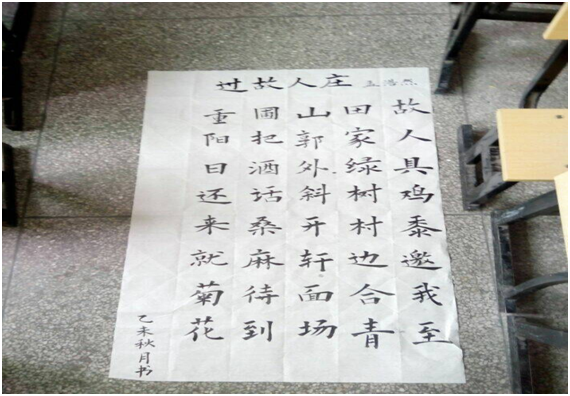 过故人庄 孟浩然
故人具鸡黍邀我至
田家绿树村边合青
山郭外斜开轩面场
圃把酒话桑麻待到
重阳日还来就菊花
乙未秋月书